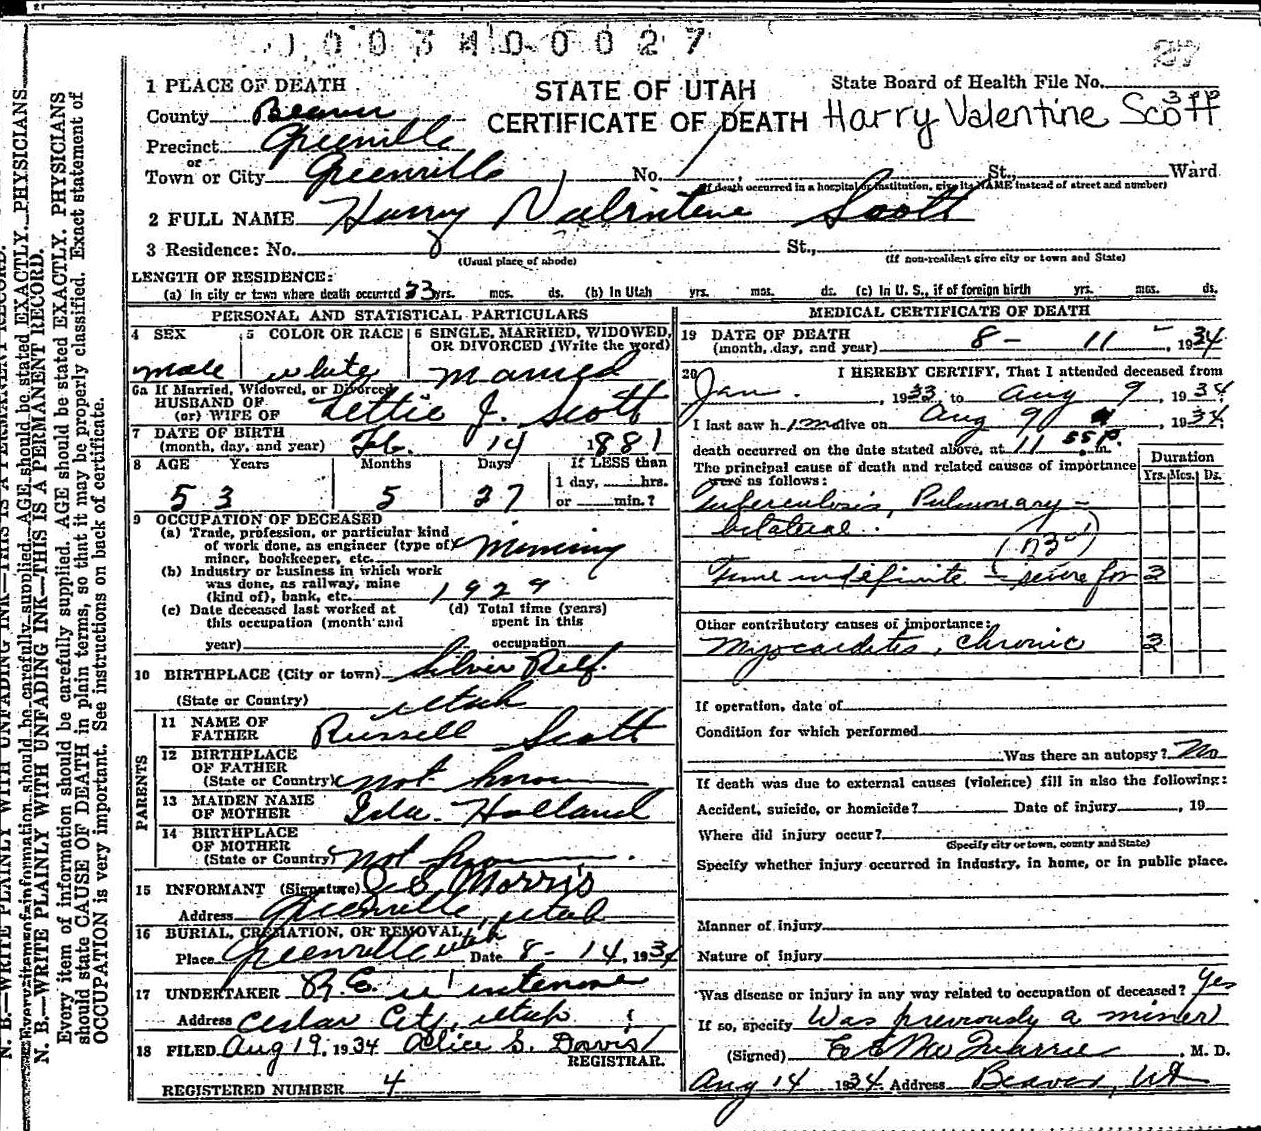 1 0 0 3 4 0 0 0 2 7
27
1 PLACE OF DEATH
STATE OF UTAH
State Board of Health File No.
County Beaver
CERTIFICATE OF DEATH
Harry Valentine Scott
Precinct Greenville
or
Town or City Greenville No. St., Ward
(If death occurred in a hospital or institution, give its NAME instead of street and number)
2 FULL NAME Harry Valintine Scott
3 Residence: No. St.,
(Usual place of abode) (If non-resident give city or town and State)
LENGTH OF RESIDENCE:
(a) In city or town where death occurred 33 yrs. mos. ds. (b) In Utah yrs. mos. ds. (c) In U. S., if of foreign birth yrs. mos. ds.
PERSONAL AND STATISTICAL PARTICULARS
4 SEX
male
5 COLOR OR RACE
white
6 SINGLE, MARRIED, WIDOWED,
OR DIVORCED (Write the word)
Married
6a If Married, Widowed, or Divorced
HUSBAND OF
(or) WIFE OF Lettie J. Scott
7 DATE OF BIRTH
(month, day, and year) Feb. 14 1881
8 AGE Years Months Days If LESS than
1 day, hrs.
53 5 27 or min.?
9 OCCUPATION OF DECEASED
(a) Trade, profession, or particular kind
of work done, as engineer (type of)
miner, bookkeeper, etc. Minning
(b) Industry or business in which work
was done, as railway, mine
(kind of), bank, etc. 1929
(c) Date deceased last worked at
this occupation (month and
year)
(d) Total time (years)
spent in this
occupation
10 BIRTHPLACE (City or town) Silver Reef.
(State or Country) Utah
PARENTS
11 NAME OF
FATHER Russell Scott
12 BIRTHPLACE
OF FATHER
(State or Country) not know
13 MAIDEN NAME
OF MOTHER Ida Holland
14 BIRTHPLACE
OF MOTHER
(State or Country) not know
15 INFORMANT (Signature) Morris
Address Greenville, Utah
16 BURIAL, CREMATION, OR REMOVAL
Place Greenville Utah Date 8-14, 1934
17 UNDERTAKER
Address Cedar City, Utah
18 FILED Aug 19, 1934 Alice S. Davis
REGISTRAR.
REGISTERED NUMBER 4
MEDICAL CERTIFICATE OF DEATH
19 DATE OF DEATH
(month, day, and year) 8 - 11 - , 1934
20 I HEREBY CERTIFY, That I attended deceased from
Jan. , 1933, to Aug 9, 1934
I last saw him alive on Aug 9, 1934
death occurred on the date stated above, at 11 55 P. m.
The principal cause of death and related causes of importance
were as follows:
Duration
Yrs. Mos. Ds.
Tuberculosis, Pulmonary -
bilateral.
Time indefinite - severe for 2
Other contributory causes of importance:
Myocarditis, chronic 2
If operation, date of
Condition for which performed
Was there an autopsy? No
If death was due to external causes (violence) fill in also the following:
Accident, suicide, or homicide? Date of injury , 19
Where did injury occur?
(Specify city or town, county and State)
Specify whether injury occurred in industry, in home, or in public place.
Manner of injury
Nature of injury
Was disease or injury in any way related to occupation of deceased? Yes
If so, specify Was previously a miner
(Signed) , M. D.
Aug 14 1934 Address Beaver, Ut
N. B.—WRITE PLAINLY WITH UNFADING INK—THIS IS A PERMANENT RECORD.
Every item of information should be carefully supplied. AGE should be stated EXACTLY. PHYSICIANS
should state CAUSE OF DEATH in plain terms, so that it may be properly classified. Exact statement of
OCCUPATION is very important. See instructions on back of certificate.